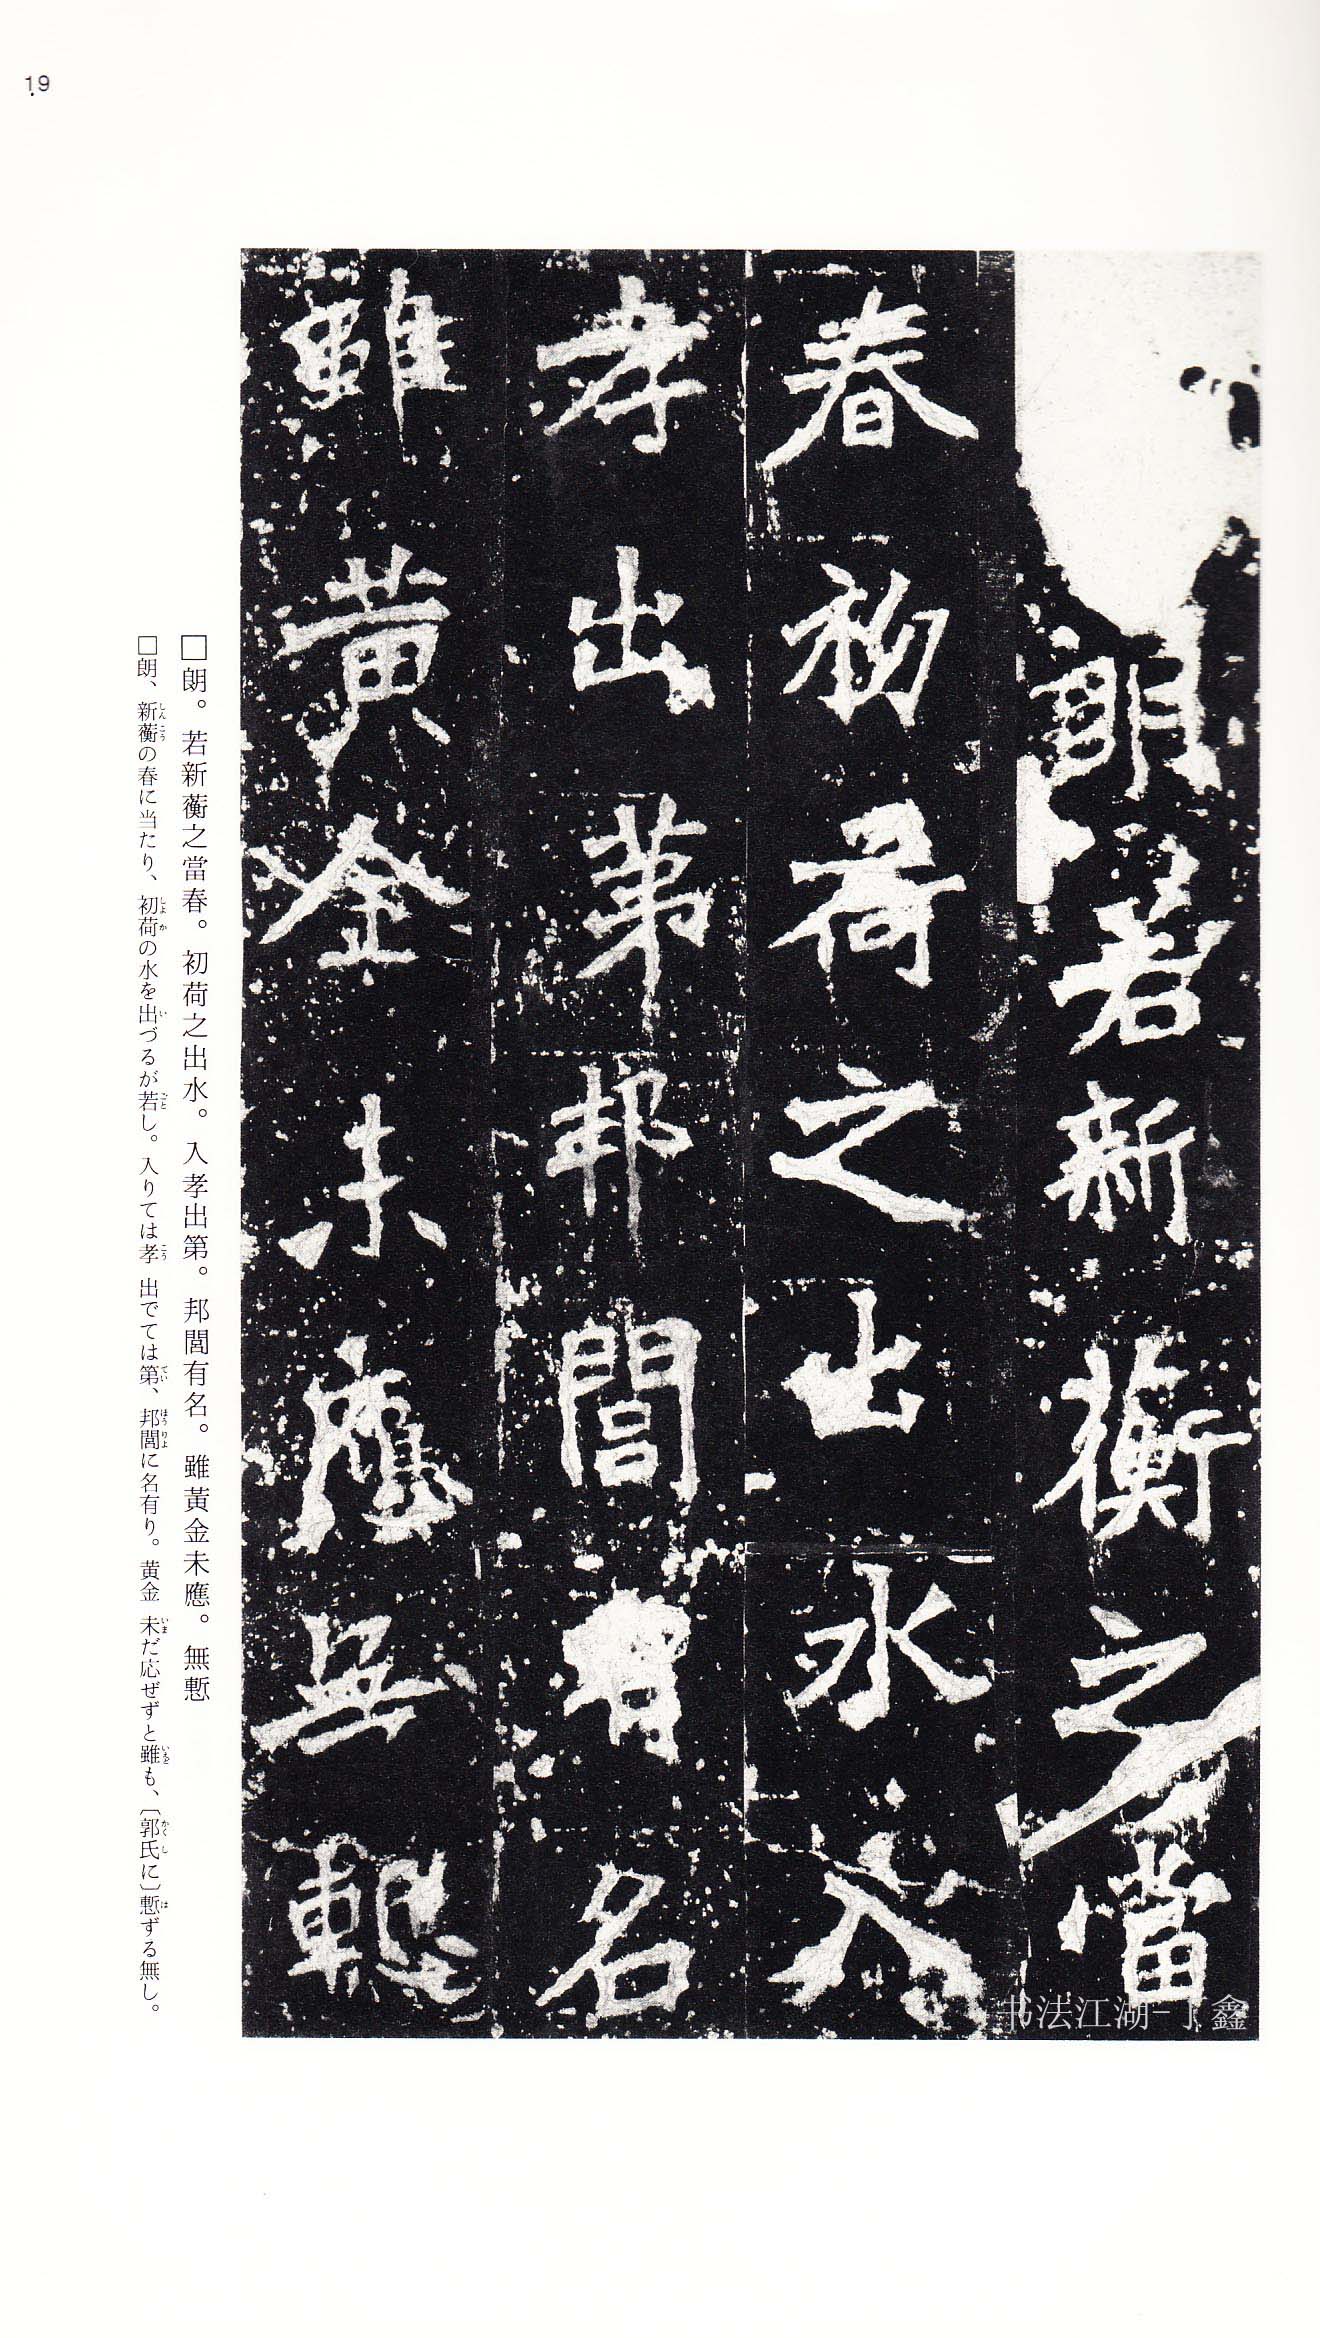 19
朗若新蘅之當
春初荷之出水入
孝出第邦閭有名
雖黃金未應無慙
□朗。若新蘅之當春。初荷之出水。入孝出第。邦閭有名。雖黃金未應。無慙
□朗、新蘅の春に当たり、初荷の水を出づるが若し。入りては孝 出でては第、邦閭に名有り。黄金 未だ応ぜずと雖も、〔郭氏に〕慙ずる無し。
书法江湖-丁鑫